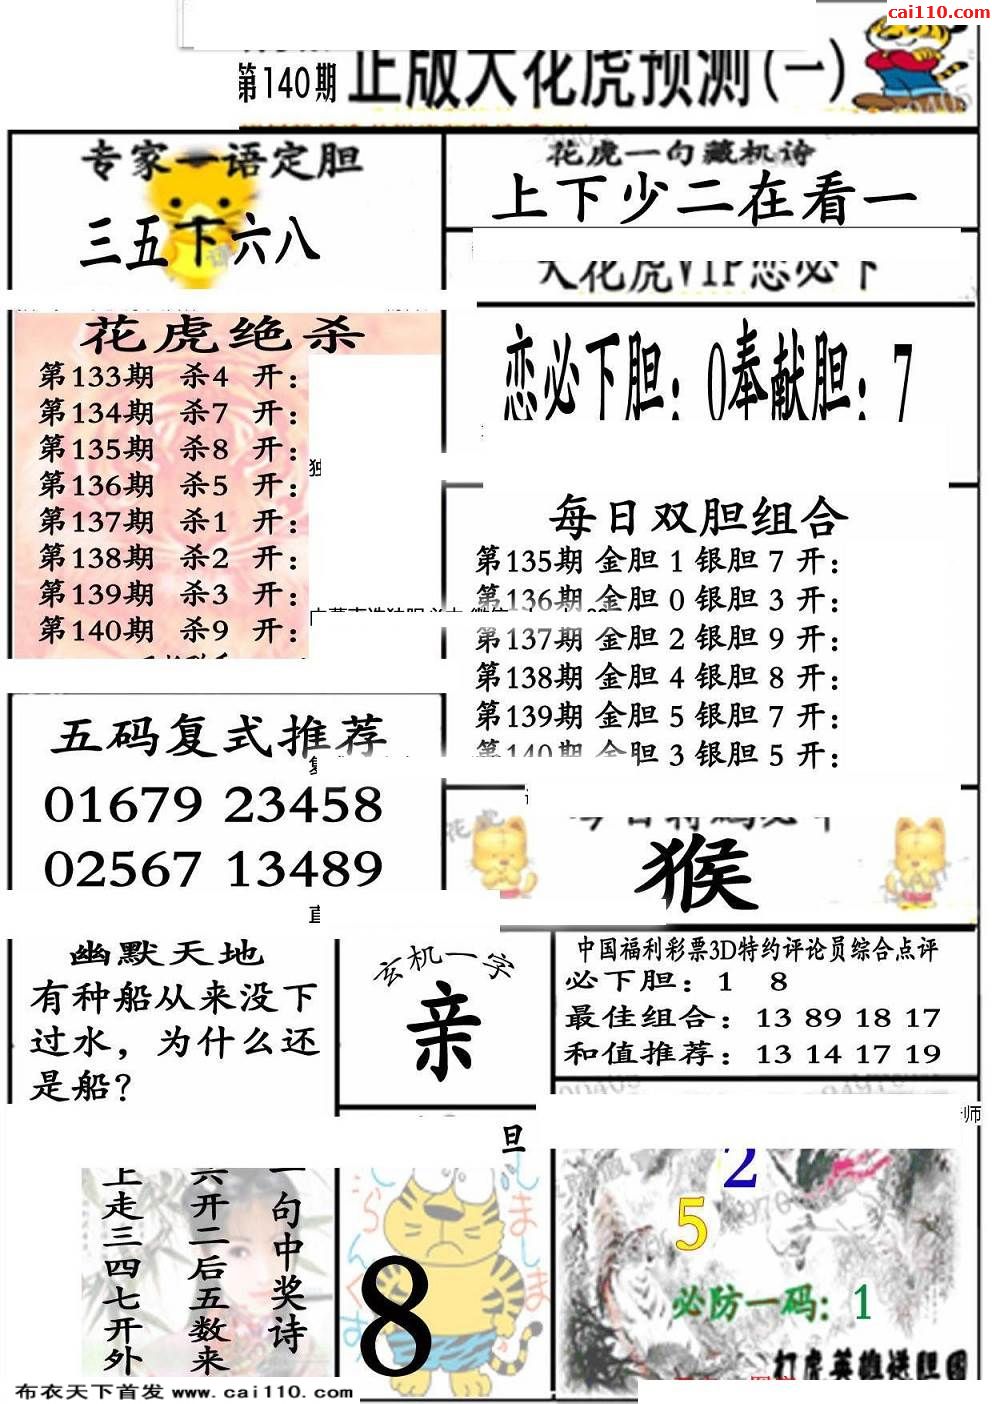 cai110.com
第140期 正版大花虎预测(一)
专家一语定胆
三五下六八
花虎一句藏机诗
上下少二在看一
大花虎VIP恋必下
恋必下胆：0奉献胆：7
花虎绝杀
第133期 杀4 开：
第134期 杀7 开：
第135期 杀8 开：
第136期 杀5 开：
第137期 杀1 开：
第138期 杀2 开：
第139期 杀3 开：
第140期 杀9 开：
独
每日双胆组合
第135期 金胆 1 银胆 7 开：
第136期 金胆 0 银胆 3 开：
第137期 金胆 2 银胆 9 开：
第138期 金胆 4 银胆 8 开：
第139期 金胆 5 银胆 7 开：
第140期 金胆 3 银胆 5 开：
五码复式推荐
01679 23458
02567 13489
猴
幽默天地
有种船从来没下
过水，为什么还
是船？
玄机一字
亲
中国福利彩票3D特约评论员综合点评
必下胆：1 8
最佳组合：13 89 18 17
和值推荐：13 14 17 19
师
一句中奖诗
六开二后五数来
上走三四七开外
旦
8
2
5
必防一码：1
打虎英雄送胆图
布衣天下首发 www.cai110.com